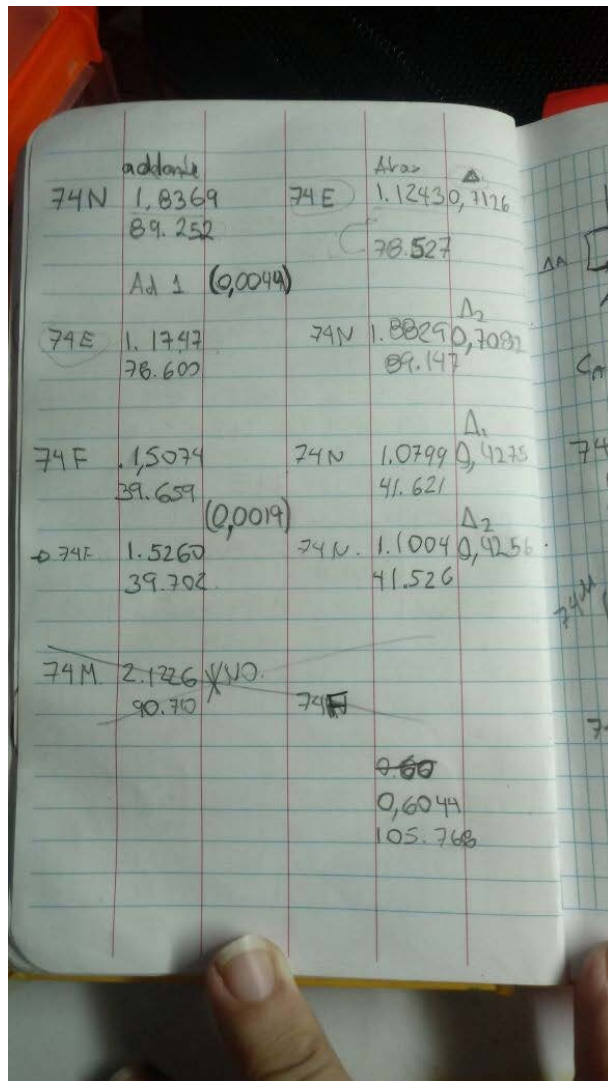 adelante Atras Δ
74N 1,8369 74E 1.1243 0,7126
89.252 78.527
Ad 1 (0,0044)
Δ2
74E 1.1747 74N 1.8829 0,7082
78.600 89.147
Δ1
74F 1,5074 74N 1.0799 0,4275
39.659 41.621
(0,0019) Δ2
74F 1.5260 74N. 1.1004 0,4256
39.702 41.526
74M 2.1226 NO.
90.70 74F
0.60
0,6044
105.768
ΔA
74
74M